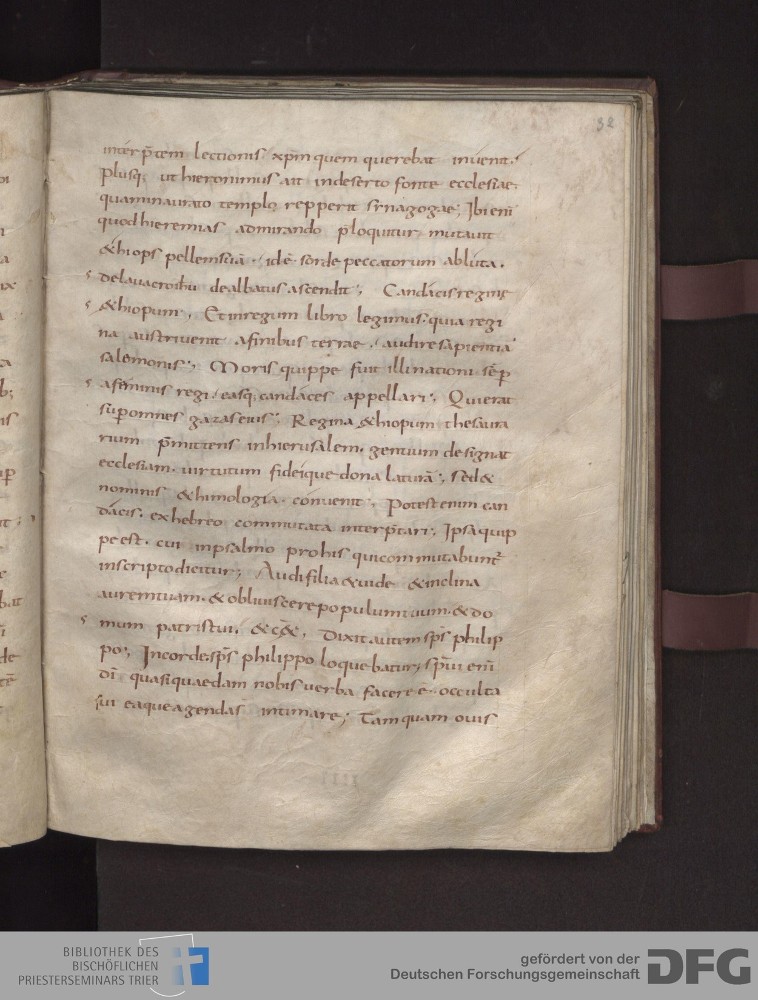 32
interp̄tem lectionis xp̄m quem querebat invenit.
Plusq; ut hieronimus ait in deserto fonte ecclesiae;
quam in aurato templo repperit synagogae; Ibi eni̅
quod hieremias admirando p̄loquitur mutavit
&hiops pellem suā. id ē sorde peccatorum abluta.
de lavacro ihu dealbatus ascendit; Candacis regine
&hiopum. Et in regum libro legimus. quia regi
na austri venit a finibus terrae. audire sapientiā
salemonis; Moris quippe fuit illi nationi sēp
a feminis regi. easq; candaces appellari; Qui erat
sup omnes gazas eius; Regina &hiopum thesaura
rium p̄mittens in hierusalem. gentium designat
ecclesiam. virtutum fideique dona laturā; sed &
nominis &himologia. convenit. Potest enim can
dacis. ex hebreo commutata interp̄tari; Ipsa quip
pe est. cui in psalmo pro his qui commutabunt̄
inscripto dicitur; Audi filia & vide & inclina
aurem tuam. & obliviscere populum tuum. & do
mum patris tui. & c&̄. Dixit autem sp̄s philip
po; In corde sp̄s philippo loquebatur; sp̄ui eni̅
dī quasi quaedam nobis verba facere ē. occulta
sui eaque agendas intimare; Tamquam ovis
BIBLIOTHEK DES
BISCHÖFLICHEN
PRIESTERSEMINARS TRIER
gefördert von der
Deutschen Forschungsgemeinschaft
DFG